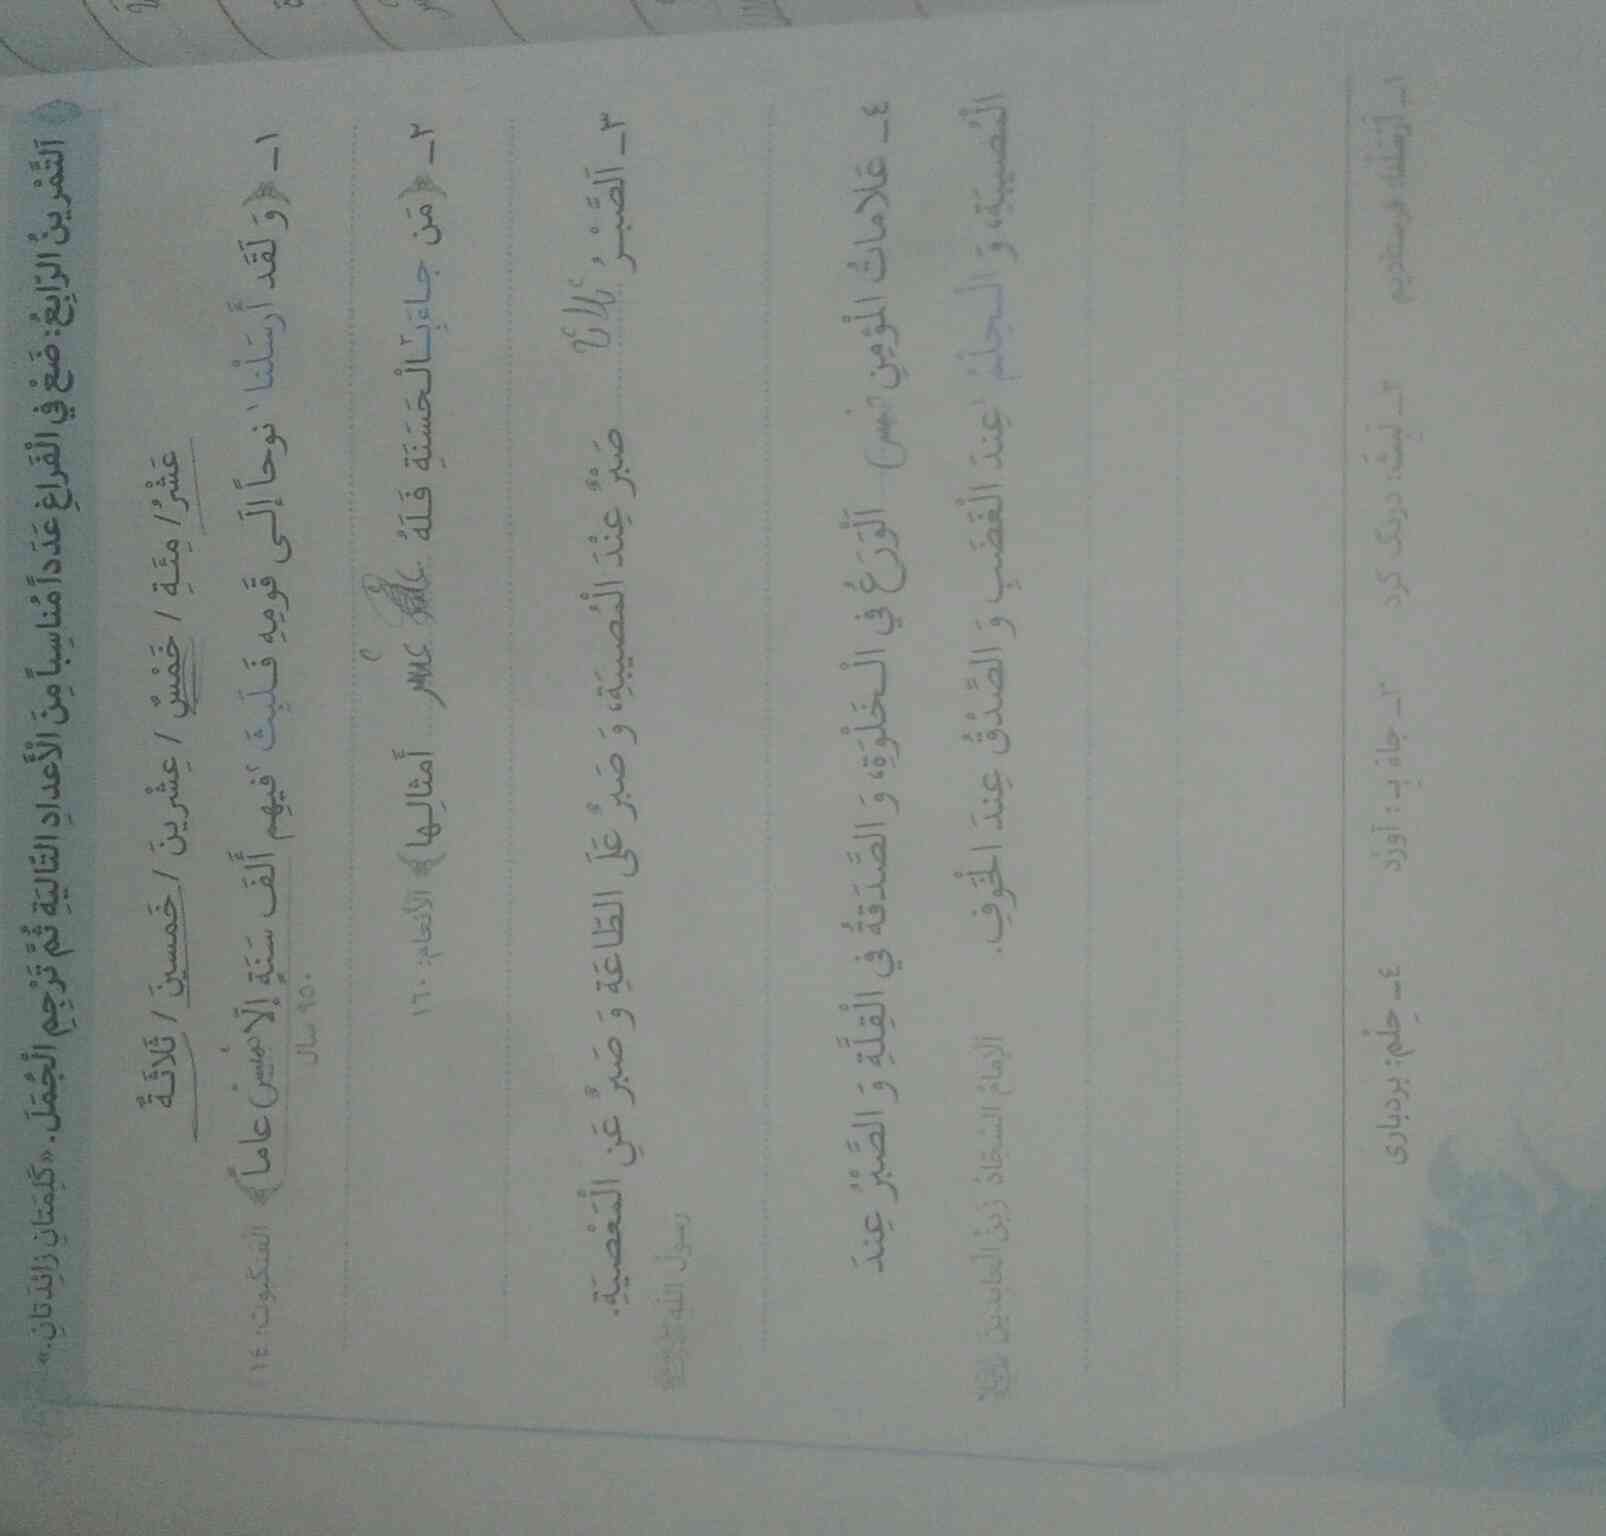 اَلتَّمْرينُ الرّابِعُ: ضَعْ فِي الْفَراغِ عَدَداً مُناسِباً مِنَ الْأَعْدادِ التّاليَةِ ثُمَّ تَرْجِمِ الْجُمَلَ. «كَلِمَتانِ زائِدَتانِ.»
عَشْرُ / مِئَةِ / خَمْسٌ / عِشْرينَ / خَمسينَ / ثَلاثَةٌ
١ـ ﴿وَ لَقَد أَرسَلْنا١ نوحاً إلَى قَومِهِ فَلَبِثَ٢ فيهِم أَلفَ سَنَةٍ إلّا خمسین عاماً﴾ العنکبوت: ١٤
٩٥٠ سال
٢ـ ﴿مَن جاءَ بِـ٣الْحَسَنَةِ فَلَهُ عشر أَمثالِها﴾ الأنعام: ١٦٠
٣ـ اَلصَّبْرُ ثلاثة صَبْرٌ عِنْدَ الْمُصيبَةِ، وَ صَبرٌ عَلَی الطّاعَةِ وَ صَبرٌ عَنِ الْمَعْصيَةِ.
رسول اللّه
٤ـ عَلاماتُ الْمُؤمِنِ خمس اَلْوَرَعُ فِي الْخَلْوَةِ، وَ الصَّدَقَةُ فِي الْقِلَّةِ وَ الصَّبْرُ عِندَ
الْمُصيبَةِ، وَ الْحِلْمُ٤ عِندَ الْغَضَبِ وَ الصِّدْقُ عِندَ الْخَوفِ. الإمامُ السَّجّادُ زَينُ العابِدينَ
١ـ أَرْسَلْنا: فرستادیم ٢ـ لَبِثَ: درنگ کرد ٣ـ جاءَ بِـ: آورْد ٤ـ حِلْم: بردباری